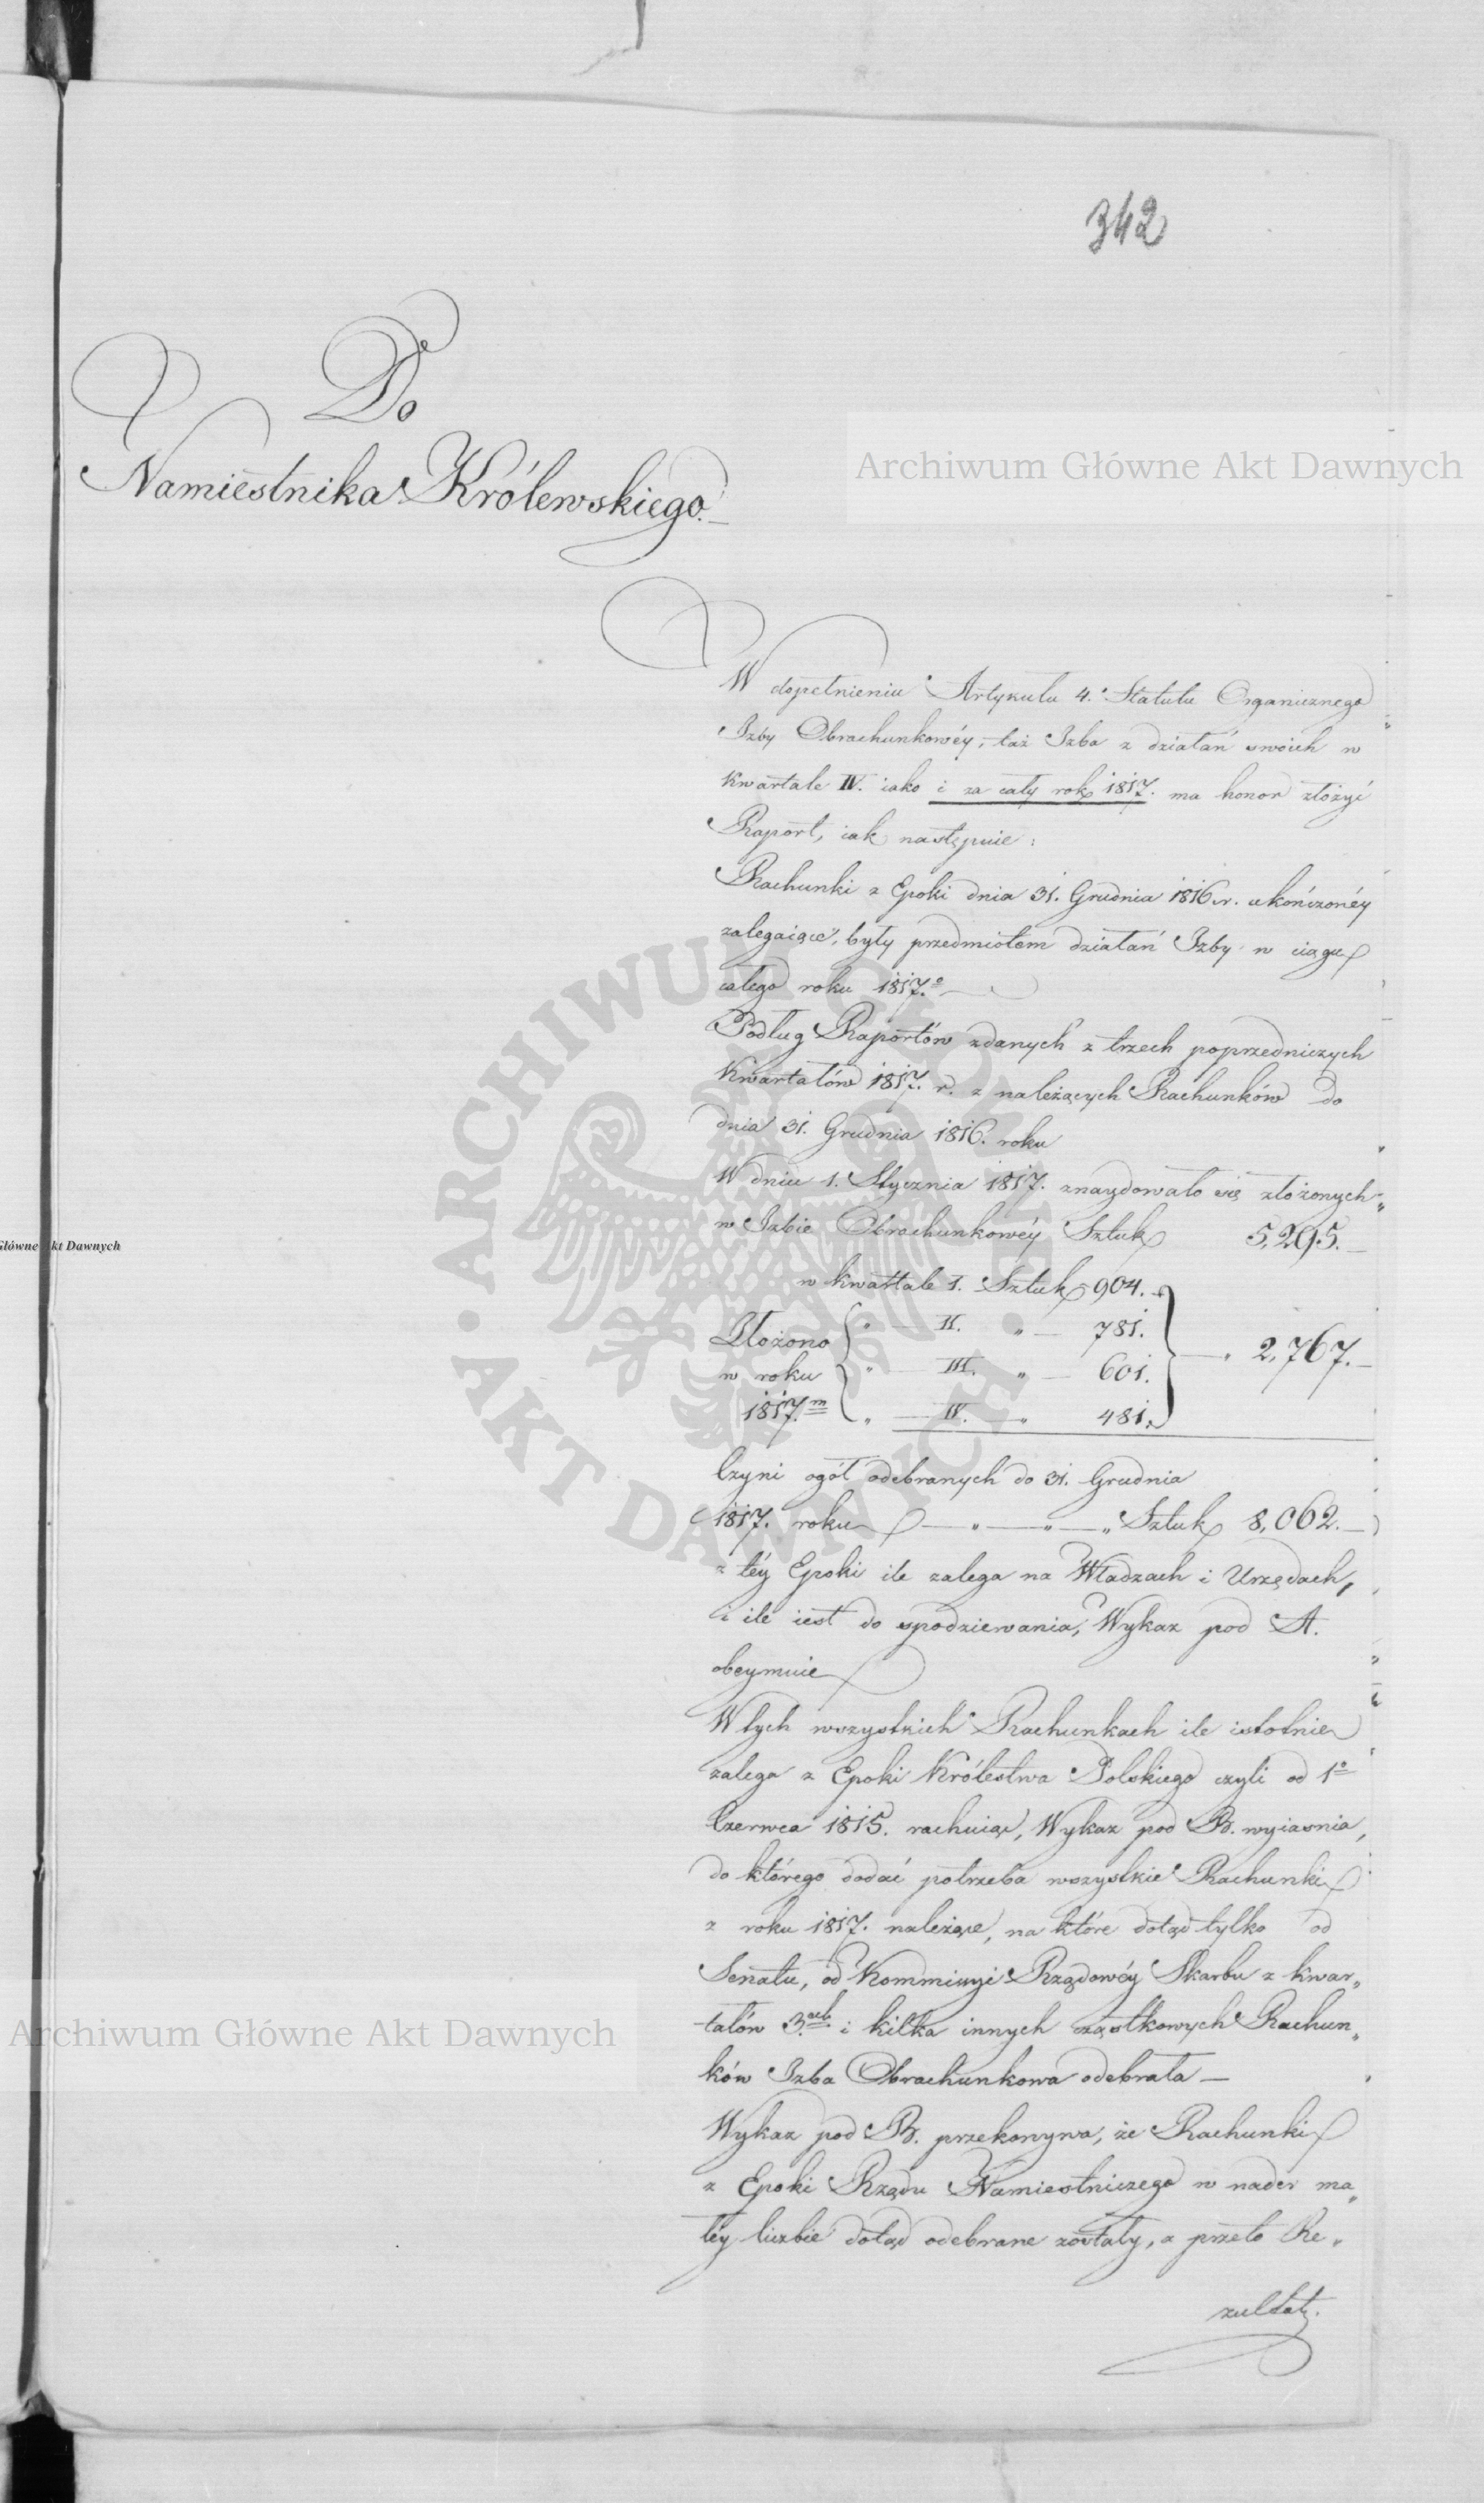 342
Do
Namiestnika Królewskiego.
W dopełnieniu Artykułu 4. Statutu Organicznego
Izby Obrachunkowéy, taż Izba z działań swoich w
Kwartale IV. iako i za cały rok 1817. ma honor złożyć
Raport, iak następuie:
Rachunki z Epoki dnia 31. Grudnia 1816. r. ukończonéy
zalegaiące, były przedmiotem działań Izby w ciągu
całego roku 1817.º
Podług Raportów zdanych z trzech poprzedniczych
Kwartałów 1817. r. z należących Rachunków do
dnia 31. Grudnia 1816. roku
W dniu 1. Stycznia 1817. znaydowało się złożonych
w Izbie Obrachunkowéy Sztuk 5,295.
w kwartale I. Sztuk 904.
Złożono „ — II. „ — 781. — „ 2,767.
w roku „ — III. „ — 601.
1817.m „ — IV. — „ 481.
Czyni ogół odebranych do 31. Grudnia
1817. roku — „ — „ — „ Sztuk 8,062.
z téy Epoki ile zalega na Władzach i Urzędach,
i ile iest do spodziewania, Wykaz pod A.
obeymuie
W tych wszystkich Rachunkach ile istotnie
zalega z Epoki Królestwa Polskiego czyli od 1º
Czerwca 1815. rachuiąc, Wykaz pod B. wyiaśnia,
do którego dodać potrzeba wszystkie Rachunki
z roku 1817. należące, na które dotąd tylko od
Senatu, od Kommissyi Rządowéy Skarbu z kwar„
tałów 3.ch i kilka innych cząstkowych Rachun„
ków Izba Obrachunkowa odebrała —
Wykaz pod B. przekonywa, że Rachunki
z Epoki Rządu Namiestniczego w nader ma„
łéy liczbie dotąd odebrane zostały, a przeto Re„
zultat.
Archiwum Główne Akt Dawnych
Główne Akt Dawnych
ARCHIWUM GŁÓWNE • AKT DAWNYCH •
Archiwum Główne Akt Dawnych